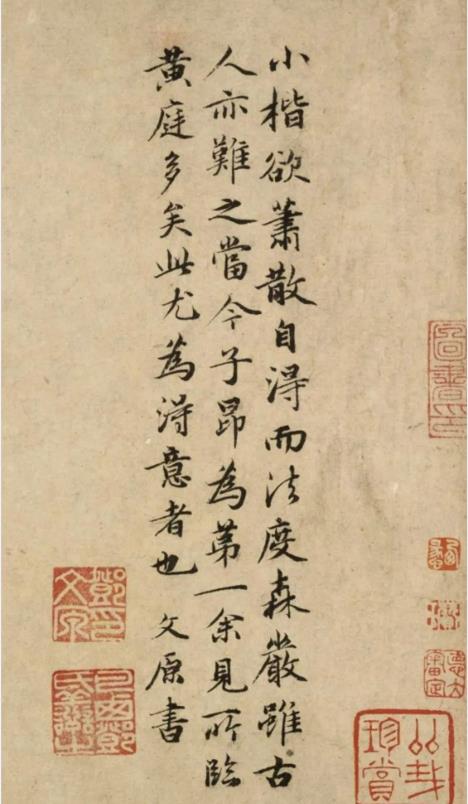 小楷欲蕭散自得而法度森嚴雖古
人亦難之當今子昂為第一余見所臨
黃庭多矣此尤為得意者也 文原書